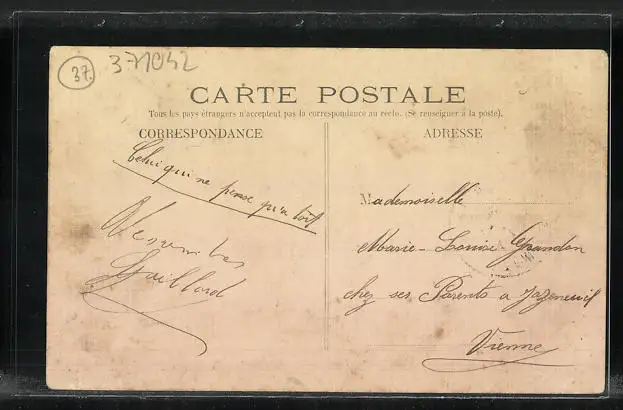 37.
371042
CARTE POSTALE
Tous les pays étrangers n'acceptent pas la correspondance au recto. (Se renseigner à la poste).
CORRESPONDANCE
ADRESSE
Celui qui ne pense qu'a toit
Gaillard
Mademoiselle
Marie-Louise Grandon
chez ses Parents a Jazeneuil
Vienne